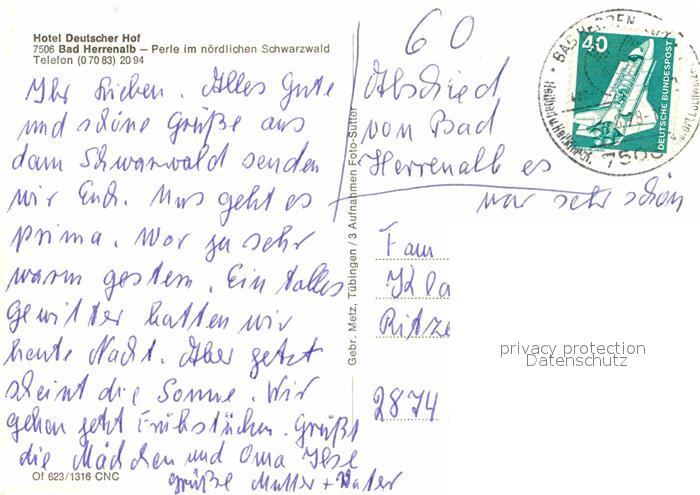 Hotel Deutscher Hof
7506 Bad Herrenalb – Perle im nördlichen Schwarzwald
Telefon (0 70 83) 20 94
Ihr Lieben. Alles Gute
und schöne Grüße aus
dem Schwarzwald senden
wir Euch. Uns geht es
prima. War ja sehr
warm gestern. Ein tolles
Gewitter hatten wir
heute Nacht. Aber jetzt
scheint die Sonne. Wir
gehen jetzt Frühstücken. Grüßt
die Mädchen und Oma Ilse
Grüße Mutter + Vater
Of 623/1316 CNC
Gebr. Metz, Tübingen / 3 Aufnahmen Foto-Sutter
60
Abschied
von Bad
Herrenalb es
war sehr schön
40
DEUTSCHE BUNDESPOST
BAD HERRENALB
7506
Fam
Kla
Ritze
2874
privacy protection
Datenschutz